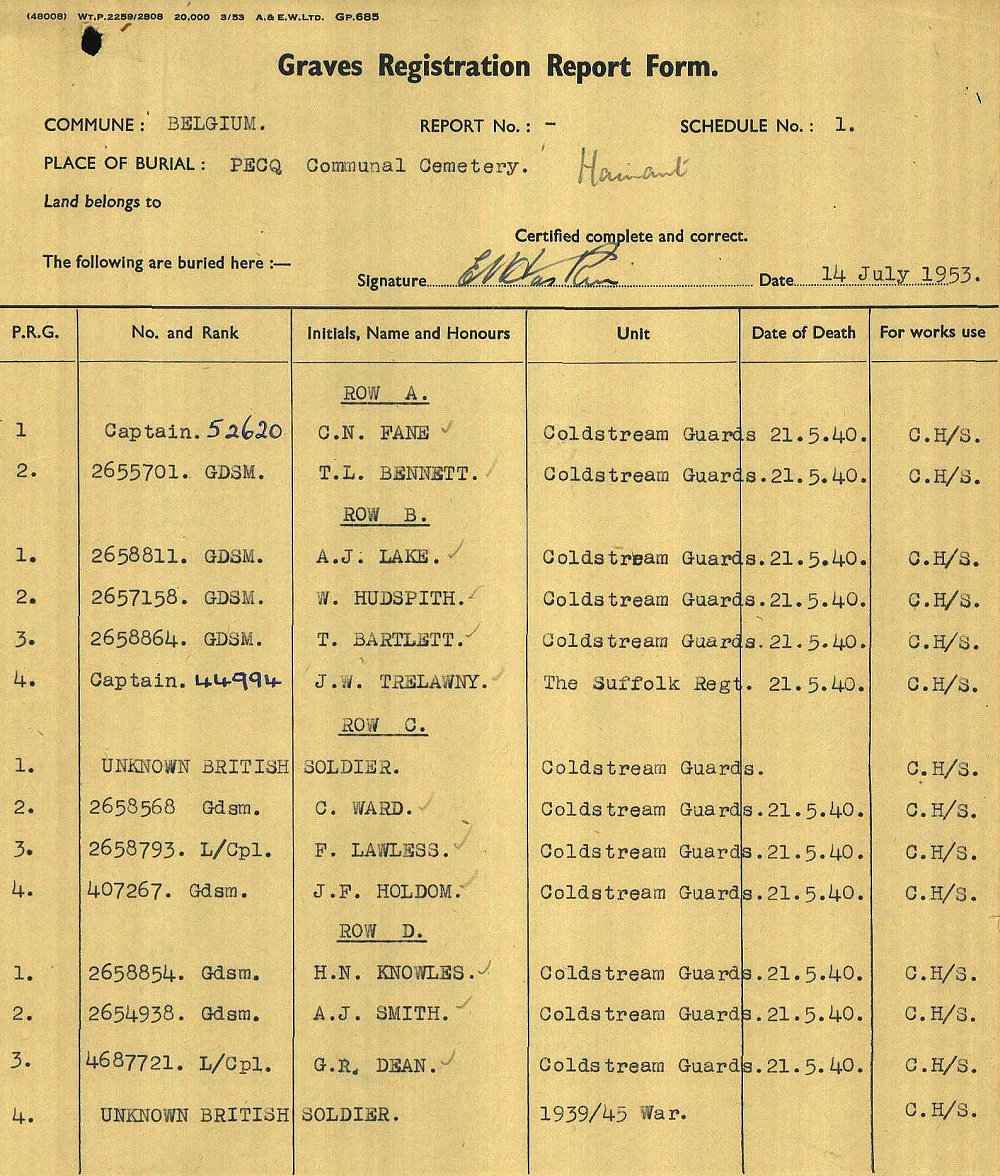 (48008) WT.P.2259/2808 20,000 3/53 A.& E.W.LTD. GP.685
Graves Registration Report Form.
COMMUNE : BELGIUM. REPORT No. : - SCHEDULE No. : 1.
PLACE OF BURIAL : PECQ Communal Cemetery. Hainaut
Land belongs to
Certified complete and correct.
The following are buried here :—
Signature Date 14 July 1953.
P.R.G. No. and Rank Initials, Name and Honours Unit Date of Death For works use
ROW A.
1 Captain. 52620 C.N. FANE ✓ Coldstream Guards 21.5.40. C.H/S.
2. 2655701. GDSM. T.L. BENNETT. ✓ Coldstream Guards. 21.5.40. C.H/S.
ROW B.
1. 2658811. GDSM. A.J. LAKE. ✓ Coldstream Guards. 21.5.40. C.H/S.
2. 2657158. GDSM. W. HUDSPITH. ✓ Coldstream Guards. 21.5.40. C.H/S.
3. 2658864. GDSM. T. BARTLETT. ✓ Coldstream Guards. 21.5.40. C.H/S.
4. Captain. 44994 J.W. TRELAWNY. ✓ The Suffolk Regt. 21.5.40. C.H/S.
ROW C.
1. UNKNOWN BRITISH SOLDIER. Coldstream Guards. C.H/S.
2. 2658568 Gdsm. C. WARD. ✓ Coldstream Guards. 21.5.40. C.H/S.
3. 2658793. L/Cpl. F. LAWLESS. ✓ Coldstream Guards. 21.5.40. C.H/S.
4. 407267. Gdsm. J.F. HOLDOM. ✓ Coldstream Guards. 21.5.40. C.H/S.
ROW D.
1. 2658854. Gdsm. H.N. KNOWLES. ✓ Coldstream Guards. 21.5.40. C.H/S.
2. 2654938. Gdsm. A.J. SMITH. ✓ Coldstream Guards. 21.5.40. C.H/S.
3. 4687721. L/Cpl. G.R. DEAN. ✓ Coldstream Guards. 21.5.40. C.H/S.
4. UNKNOWN BRITISH SOLDIER. 1939/45 War. C.H/S.